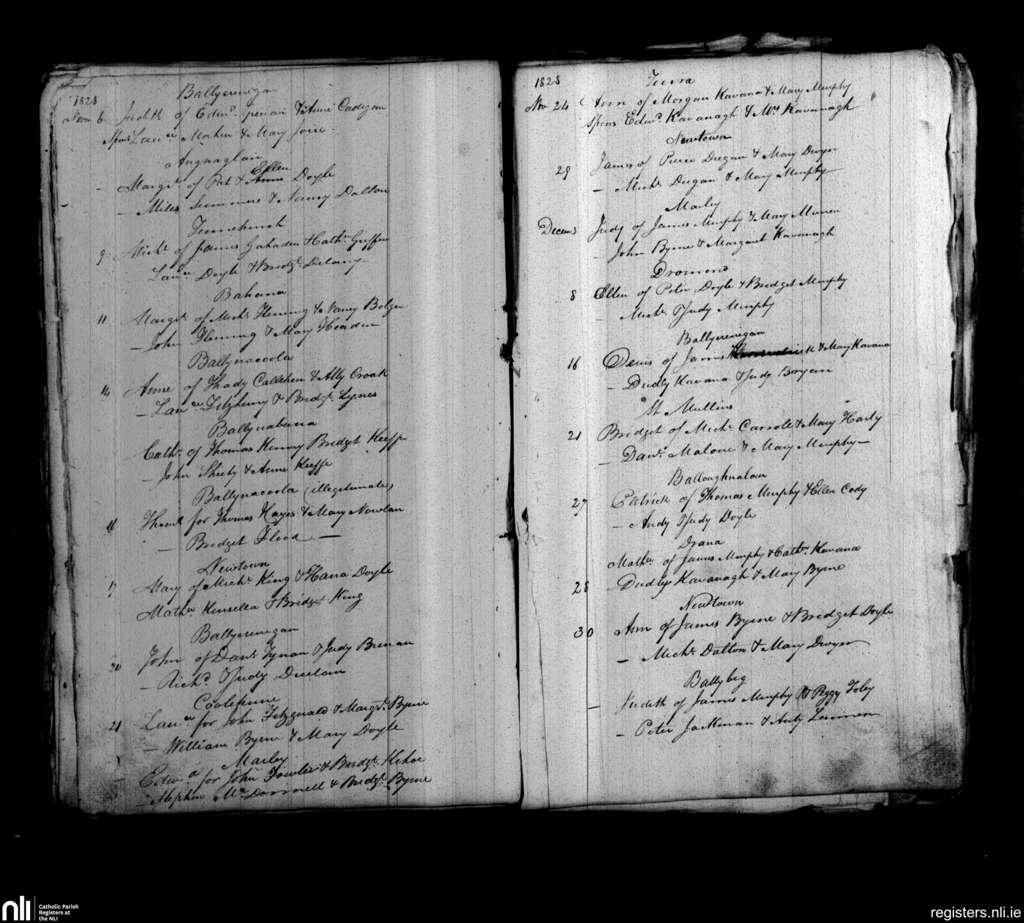 1828
Ballycrinegan
Novr 6 Judith of Edwd & Anne Cadogan
Spons Laurce Maher & Mary Joice
- Margt of Pat & Ellen Doyle
- Miles Summers & Nancy Dalton
Tinnehinch
9 Michl of James & Cathe Griffin
Laurce Doyle & Bridgt Delany
Bahana
11 Margt of Michl Fleming & Nancy Bolger
- John Fleming & Mary Headen
Ballynacoola
14 Anne of Thady Callihen & Ally Croak
- Laurce Fitzhenry & Bridgt Lynes
Ballynabanna
Cathe of Thomas Kenny Bridget Keeffe
- John Sheety & Anne Keeffe
Ballynacoola (illegitimate)
for Thomas Hayes & Mary Nowlan
- Bridget Flood -
Newtown
17 Mary of Michl King & Hana Doyle
Mathw Kinsella & Bridget King
Ballycrenegan
20 John of Danl Tynan & Judy Brenan
- Richd & Judy
Coolepune
21 Laurce for John Fitzgerald & Margt Byrne
- William Byrne & Mary Doyle
Marley
Edwd for John Fowler & Bridgt Kehoe
- Stephen McDonnell & Bridgt Byrne
1828
Tinna
Nov 24 Ann of Morgan Kavana & Mary Murphy
Spons Edwd Kavanagh & Mrs Kavanagh
Newtown
29 James of Pierce Deegan & Mary Dwyer
- Michl Deegan & Mary Murphy
Marley
Decemr Judy of James Murphy & Mary
- John Byrne & Margaret Kavanagh
Dromond
8 Ellen of Peter Doyle & Bridget Murphy
- Michl & Judy Murphy
Ballycrenegan
16 Denis of James & Mary Kavana
- Dudly Kavana & Judy
St Mullins
21 Bridget of Michl Carroll & Mary Hardy
- Danl Malone & Mary Murphy -
27 Patrick of Thomas Murphy & Ellen Cody
- Andy & Judy Doyle
Drana
Mathw of James Murphy & Cathe Kavana
28 Dudley Kavanagh & Mary Byrne
Newtown
30 Ann of James Byrne & Bridget Doyle
- Michl Dalton & Mary Dwyer
Ballybeg
- Judith of James Murphy & Peggy Foley
- Peter Jackman & Lennon
nli
Catholic Parish
Registers at
the NLI
registers.nli.ie